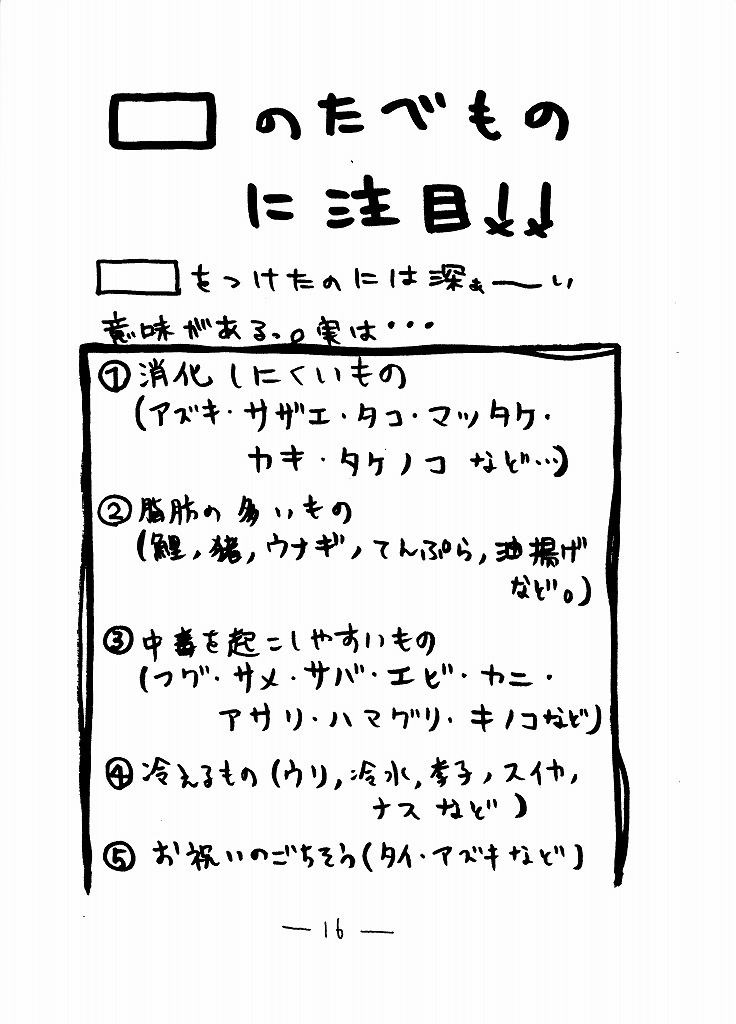 □のたべもの
に注目!!
□をつけたのには深ぁーい
意味がある。。実は・・・
①消化しにくいもの
(アズキ・サザエ・タコ・マツタケ・
カキ・タケノコ など…)
②脂肪の多いもの
(鯉,猪,ウナギ,てんぷら,油揚げ
など。)
③中毒を起こしやすいもの
(フグ・サメ・サバ・エビ・カニ・
アサリ・ハマグリ・キノコなど)
④冷えるもの(ウリ,冷水,李子,スイカ,
ナス など)
⑤お祝いのごちそう(タイ・アズキなど)
—16—